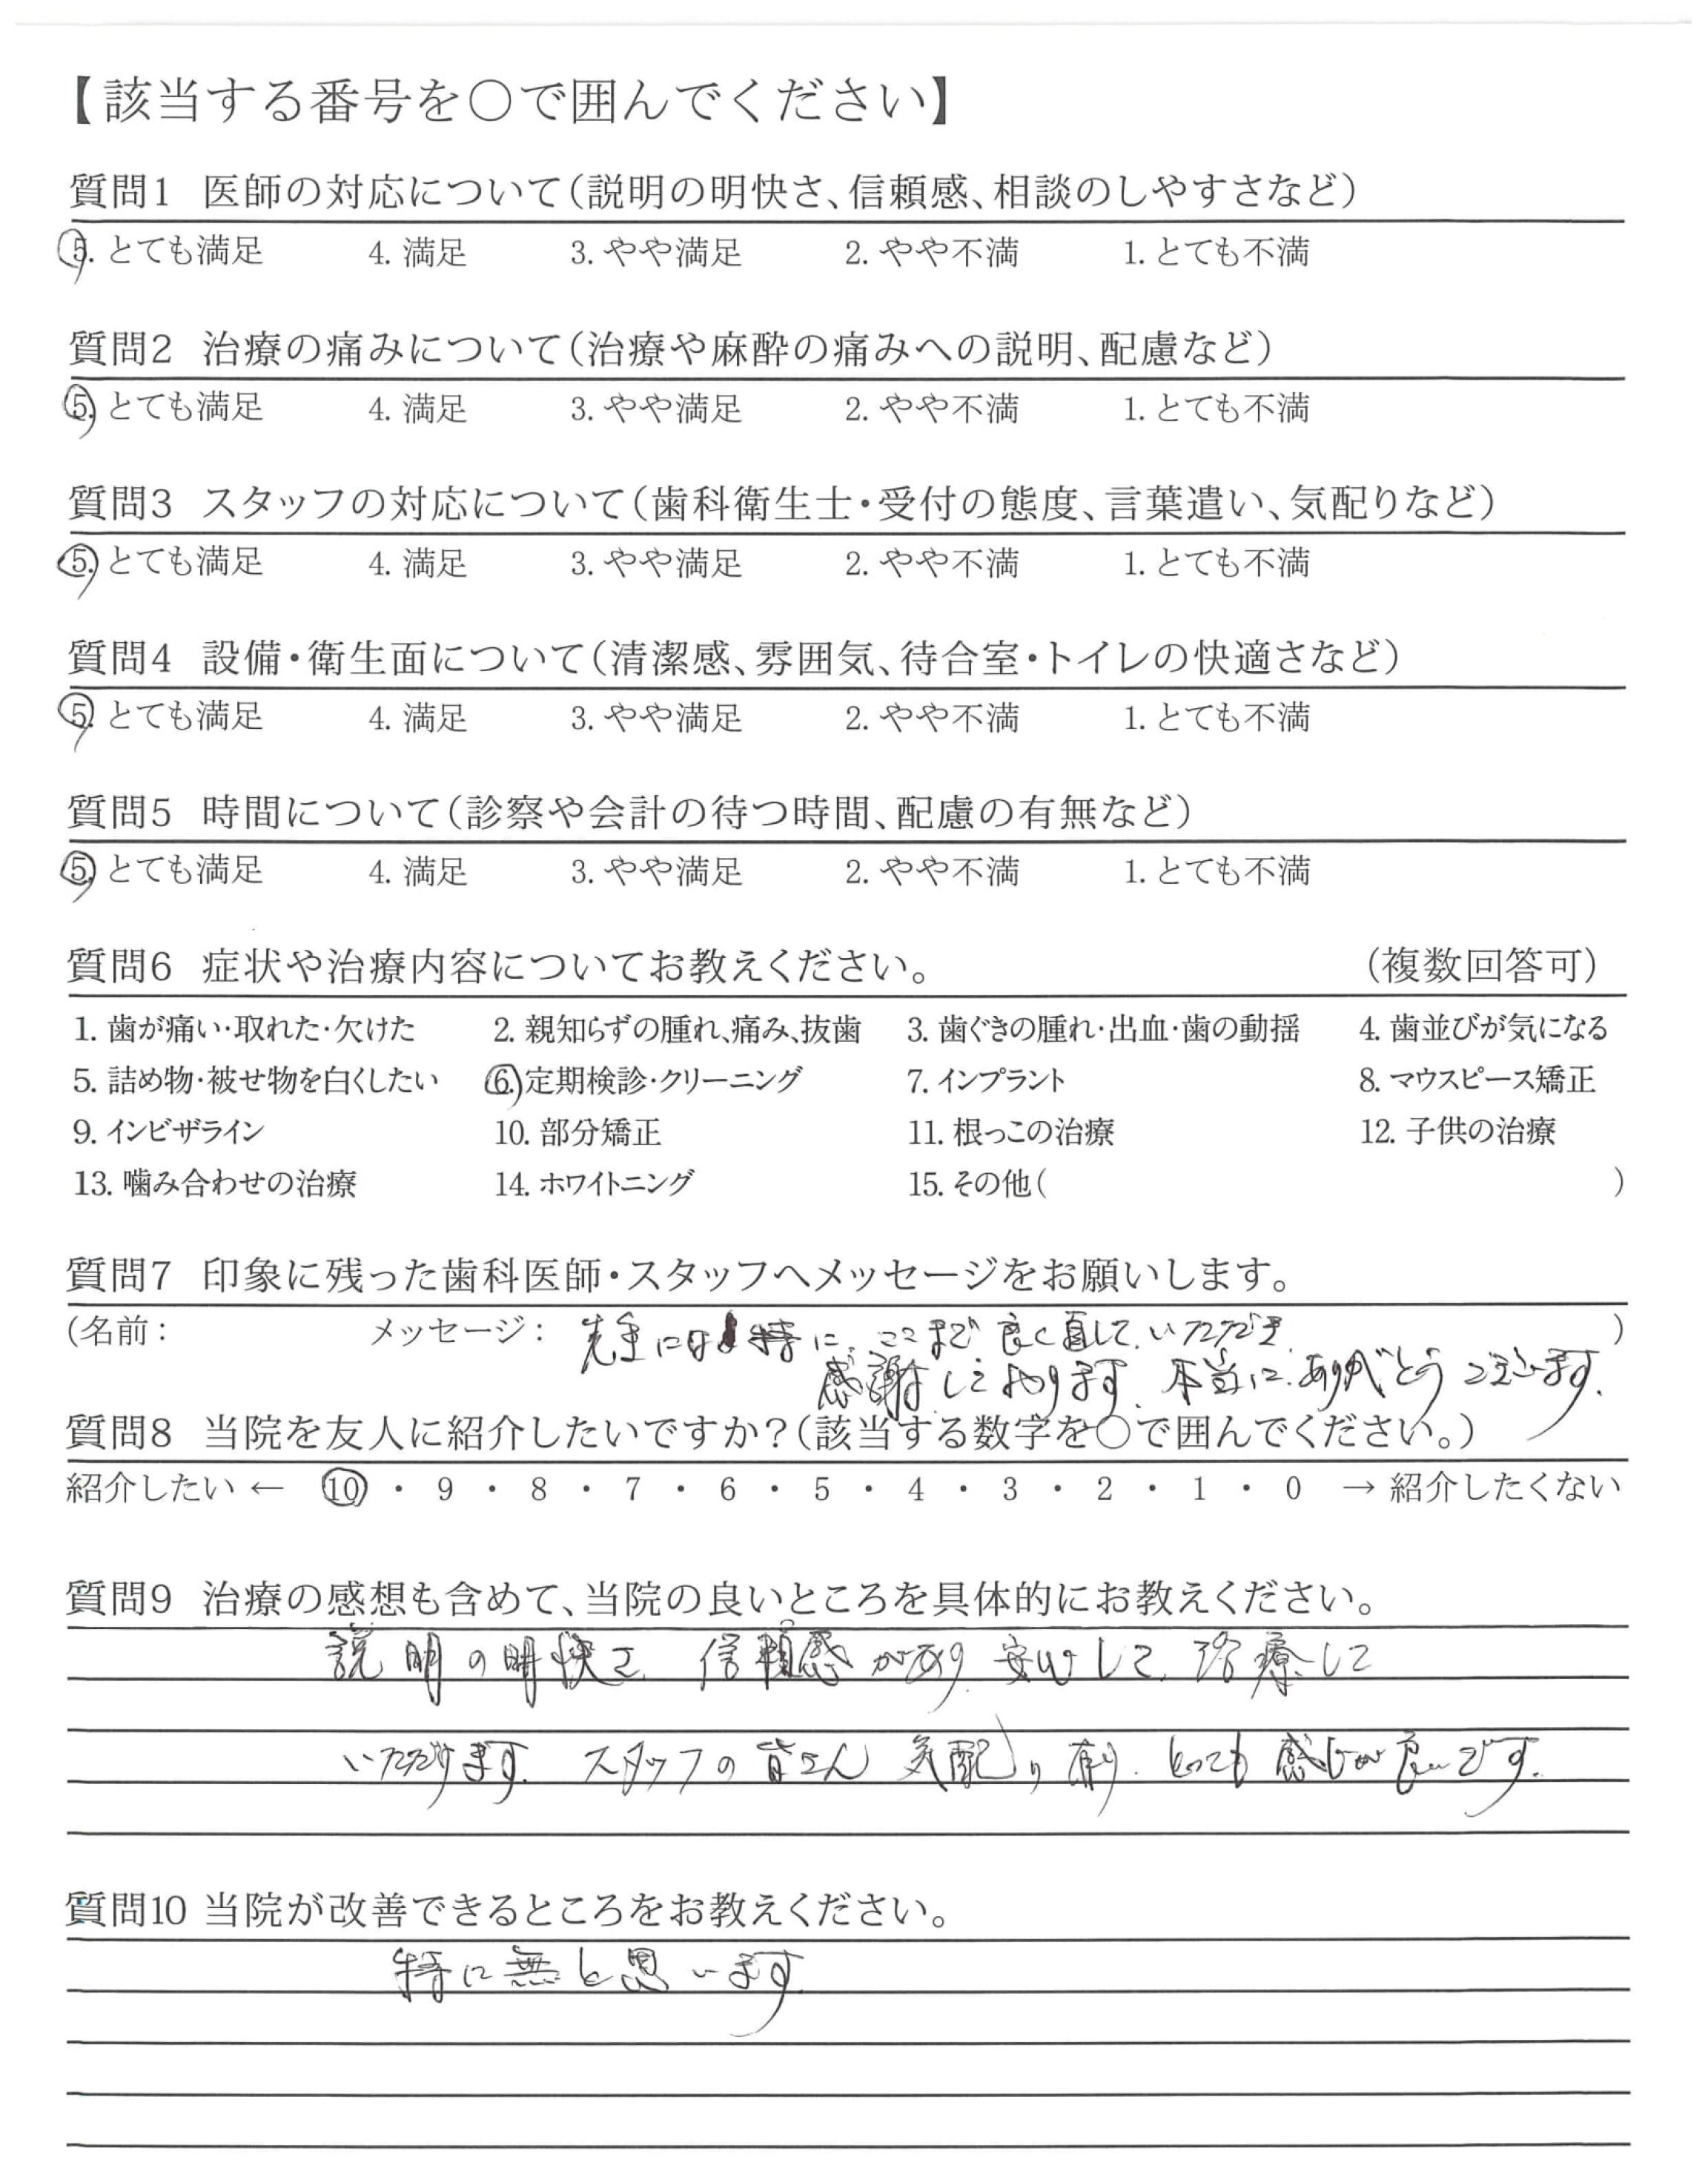 【該当する番号を○で囲んでください】
質問1 医師の対応について(説明の明快さ、信頼感、相談のしやすさなど)
5. とても満足 4. 満足 3. やや満足 2. やや不満 1. とても不満
質問2 治療の痛みについて(治療や麻酔の痛みへの説明、配慮など)
5. とても満足 4. 満足 3. やや満足 2. やや不満 1. とても不満
質問3 スタッフの対応について(歯科衛生士・受付の態度、言葉遣い、気配りなど)
5. とても満足 4. 満足 3. やや満足 2. やや不満 1. とても不満
質問4 設備・衛生面について(清潔感、雰囲気、待合室・トイレの快適さなど)
5. とても満足 4. 満足 3. やや満足 2. やや不満 1. とても不満
質問5 時間について(診察や会計の待つ時間、配慮の有無など)
5. とても満足 4. 満足 3. やや満足 2. やや不満 1. とても不満
質問6 症状や治療内容についてお教えください。 (複数回答可)
1. 歯が痛い・取れた・欠けた 2. 親知らずの腫れ、痛み、抜歯 3. 歯ぐきの腫れ・出血・歯の動揺 4. 歯並びが気になる
5. 詰め物・被せ物を白くしたい 6. 定期検診・クリーニング 7. インプラント 8. マウスピース矯正
9. インビザライン 10. 部分矯正 11. 根っこの治療 12. 子供の治療
13. 噛み合わせの治療 14. ホワイトニング 15. その他( )
質問7 印象に残った歯科医師・スタッフへメッセージをお願いします。
(名前: メッセージ: 先生には特に、ここまで良く直して、いただき )
感謝しております。本当に、ありがとうございます。
質問8 当院を友人に紹介したいですか?(該当する数字を○で囲んでください。)
紹介したい ← 10 ・ 9 ・ 8 ・ 7 ・ 6 ・ 5 ・ 4 ・ 3 ・ 2 ・ 1 ・ 0 → 紹介したくない
質問9 治療の感想も含めて、当院の良いところを具体的にお教えください。
説明の明快さ、信頼感があり、安心して、治療して
いただけます。スタッフの皆さん 気配り有り、とっても感じが良いです。
質問10 当院が改善できるところをお教えください。
特に無と思います。